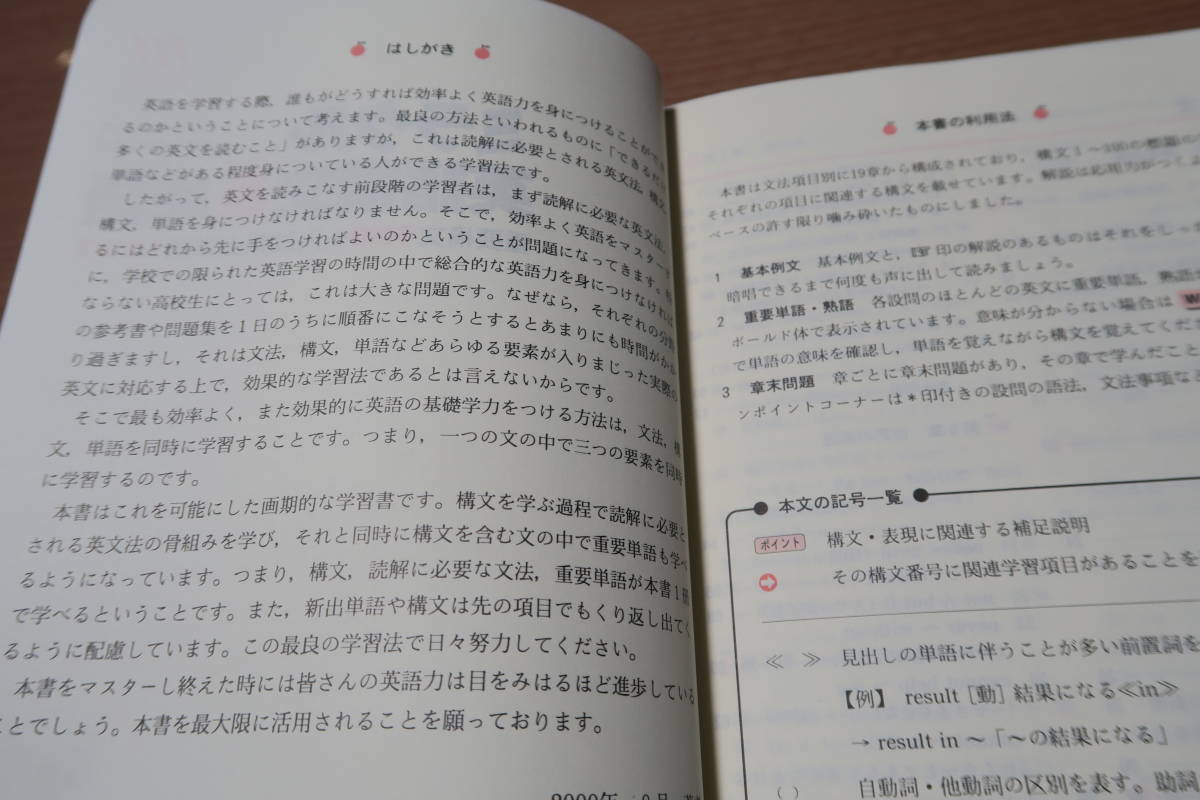 はしがき
英語を学習する際，誰もがどうすれば効率よく英語力を身につけることができ
るのかということについて考えます。最良の方法といわれるものに「できるだけ
多くの英文を読むこと」がありますが，これは読解に必要とされる英文法，構文，
単語などがある程度身についている人ができる学習法です。
したがって，英文を読みこなす前段階の学習者は，まず読解に必要な英文法，
構文，単語を身につけなければなりません。そこで，効率よく英語をマスターす
るにはどれから先に手をつければよいのかということが問題になってきます。特
に，学校での限られた英語学習の時間の中で総合的な英語力を身につけなければ
ならない高校生にとっては，これは大きな問題です。なぜなら，それぞれの分野
の参考書や問題集を1日のうちに順番にこなそうとするとあまりにも時間がかか
り過ぎますし，それは文法，構文，単語などあらゆる要素が入りまじった実際の
英文に対応する上で，効果的な学習法であるとは言えないからです。
そこで最も効率よく，また効果的に英語の基礎学力をつける方法は，文法，構
文，単語を同時に学習することです。つまり，一つの文の中で三つの要素を同時
に学習するのです。
本書はこれを可能にした画期的な学習書です。構文を学ぶ過程で読解に必要と
される英文法の骨組みを学び，それと同時に構文を含む文の中で重要単語も学べ
るようになっています。つまり，構文，読解に必要な文法，重要単語が本書1冊
で学べるということです。また，新出単語や構文は先の項目でもくり返し出てく
るように配慮しています。この最良の学習法で日々努力してください。
本書をマスターし終えた時には皆さんの英語力は目をみはるほど進歩している
ことでしょう。本書を最大限に活用されることを願っております。
2000年
本書の利用法
本書は文法項目別に19章から構成されており，構文1～100の
それぞれの項目に関連する構文を載せています。解説は応用力がつくよ
ペースの許す限り噛み砕いたものにしました。
1 基本例文 基本例文と，☞印の解説のあるものはそれをしっ
暗唱できるまで何度も声に出して読みましょう。
2 重要単語・熟語 各設問のほとんどの英文に重要単語，熟語が
ボールド体で表示されています。意味が分からない場合は
で単語の意味を確認し，単語を覚えながら構文を覚えてくだ
3 章末問題 章ごとに章末問題があり，その章で学んだこと
ンポイントコーナーは＊印付きの設問の語法，文法事項な
本文の記号一覧
ポイント 構文・表現に関連する補足説明
その構文番号に関連学習項目があることを
≪ ≫ 見出しの単語に伴うことが多い前置詞を
【例】 result［動］結果になる≪in≫
→ result in ～「～の結果になる」
( ) 自動詞・他動詞の区別を表す。助詞